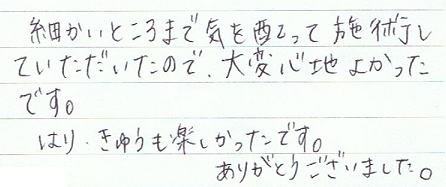 細かいところまで気を配って施術し
ていただいたので、大変心地よかった
です。
はり・きゅうも楽しかったです。
ありがとうございました。